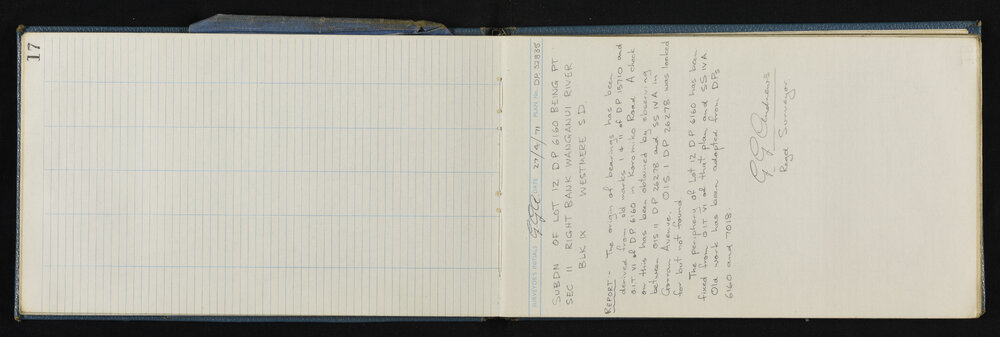 17
SURVEYOR'S INITIALS GGA DATE 27/9/71 PLAN No. DP. 32835
SUBDN OF LOT 12 D.P. 6160 BEING PT
SEC 11 RIGHT BANK WANGANUI RIVER
BLK IX WESTMERE S.D.
REPORT - The origin of bearings has been
derived from old marks 1 & 11 of D.P. 15710 and
OIT VI of D.P. 6160 in Koromiko Road. A check
on this has been obtained by observing
between OIS 11 D.P. 26278 and SS IVA in
Gorran Avenue. OIS 1 D.P. 26278 was looked
for but not found
The periphery of Lot 12 D.P. 6160 has been
fixed from OIT VI of that plan and SS IVA
Old work has been adopted from DPs
6160 and 7018.
G G Andrews
Regd Surveyor